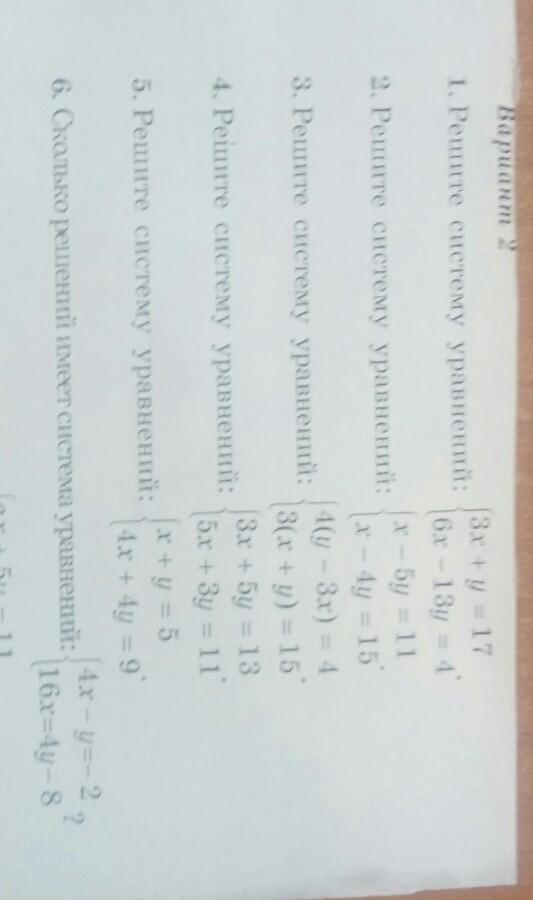 Вариант 2
1. Решите систему уравнений: {3x + y = 17
6x − 13y = 4.
2. Решите систему уравнений: {x − 5y = 11
x − 4y = 15.
3. Решите систему уравнений: {4(y − 3x) = 4
3(x + y) = 15.
4. Решите систему уравнений: {3x + 5y = 13
5x + 3y = 11.
5. Решите систему уравнений: {x + y = 5
4x + 4y = 9.
6. Сколько решений имеет система уравнений: {4x − y = − 2
16x = 4y − 8 ?